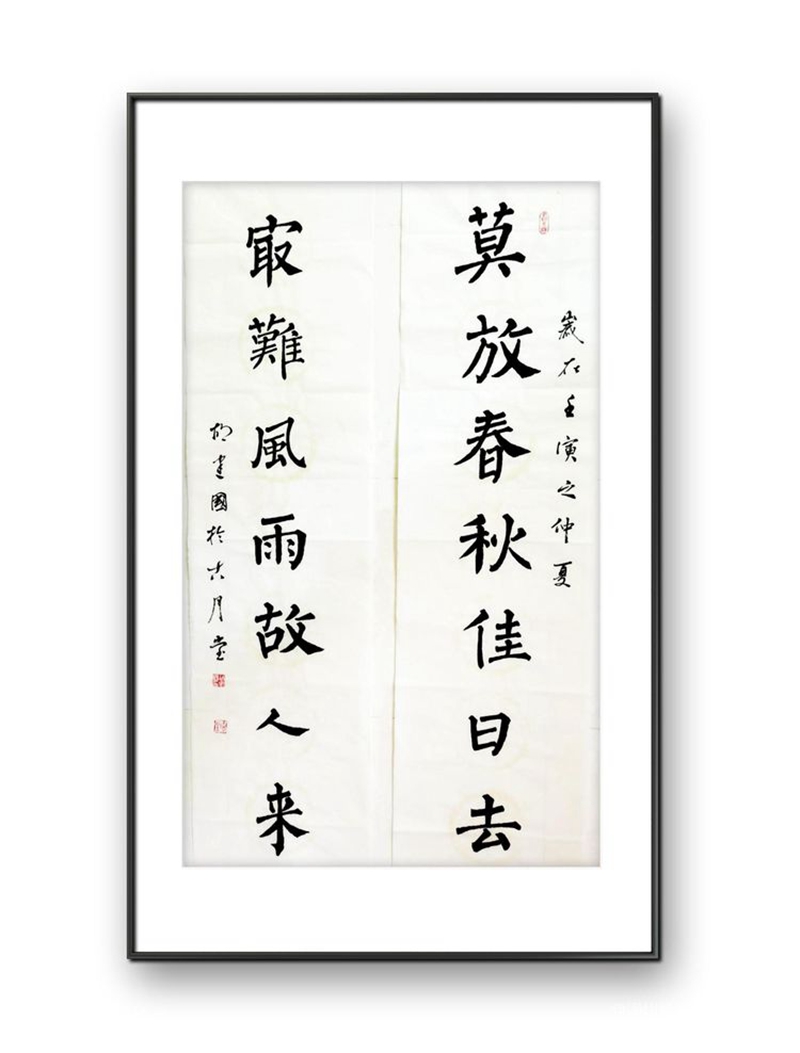 嵗在壬寅之仲夏
莫放春秋佳日去
㝡難風雨故人来
胡建國於古月堂